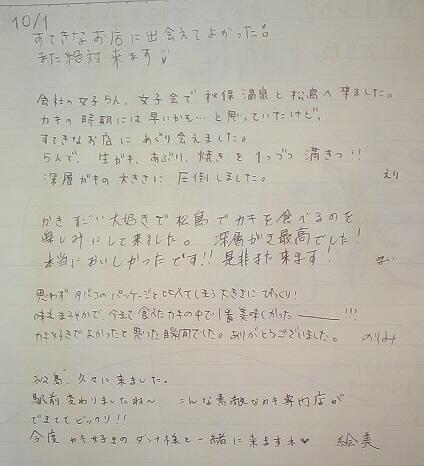 10/1
すてきなお店に出会えてよかった♡
また絶対来ます♡
会社の女子5人、女子会で秋保温泉と松島へ来ました。
カキの時期には早いかも…と思っていたけど、
すてきなお店にめぐり会えました。
5人で、生ガキ、あぶり、焼きを1つづつ満きつ!!
深層ガキの大きさに圧倒しました。
えり
かきすごい大好きで松島でカキを食べるのを
楽しみにして来ました。深層がき最高でした!
本当においしかったです!!是非また来ます!
思わずタバコのパッケージと比べてしまう大きさにびっくり!
味もまろやかで、今まで食べたカキの中で1番美味しかったー!!!
カキ好きでよかったと思った瞬間でした。ありがとうございました。 のりみ
松島、久々に来ました。
駅前変わりましたね〜 こんな素敵なカキ専門店が
できててビックリ!!
今度カキ好きのダンナ様と一緒に来ますネ♥ 絵美